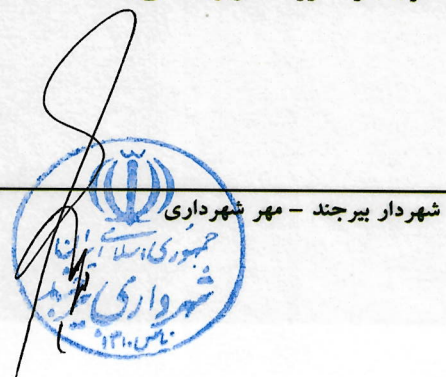 شهردار بیرجند – مهر شهرداری
جمهوری اسلامی ایران
شهرداری بیرجند
تاسیس ۱۳۱۰